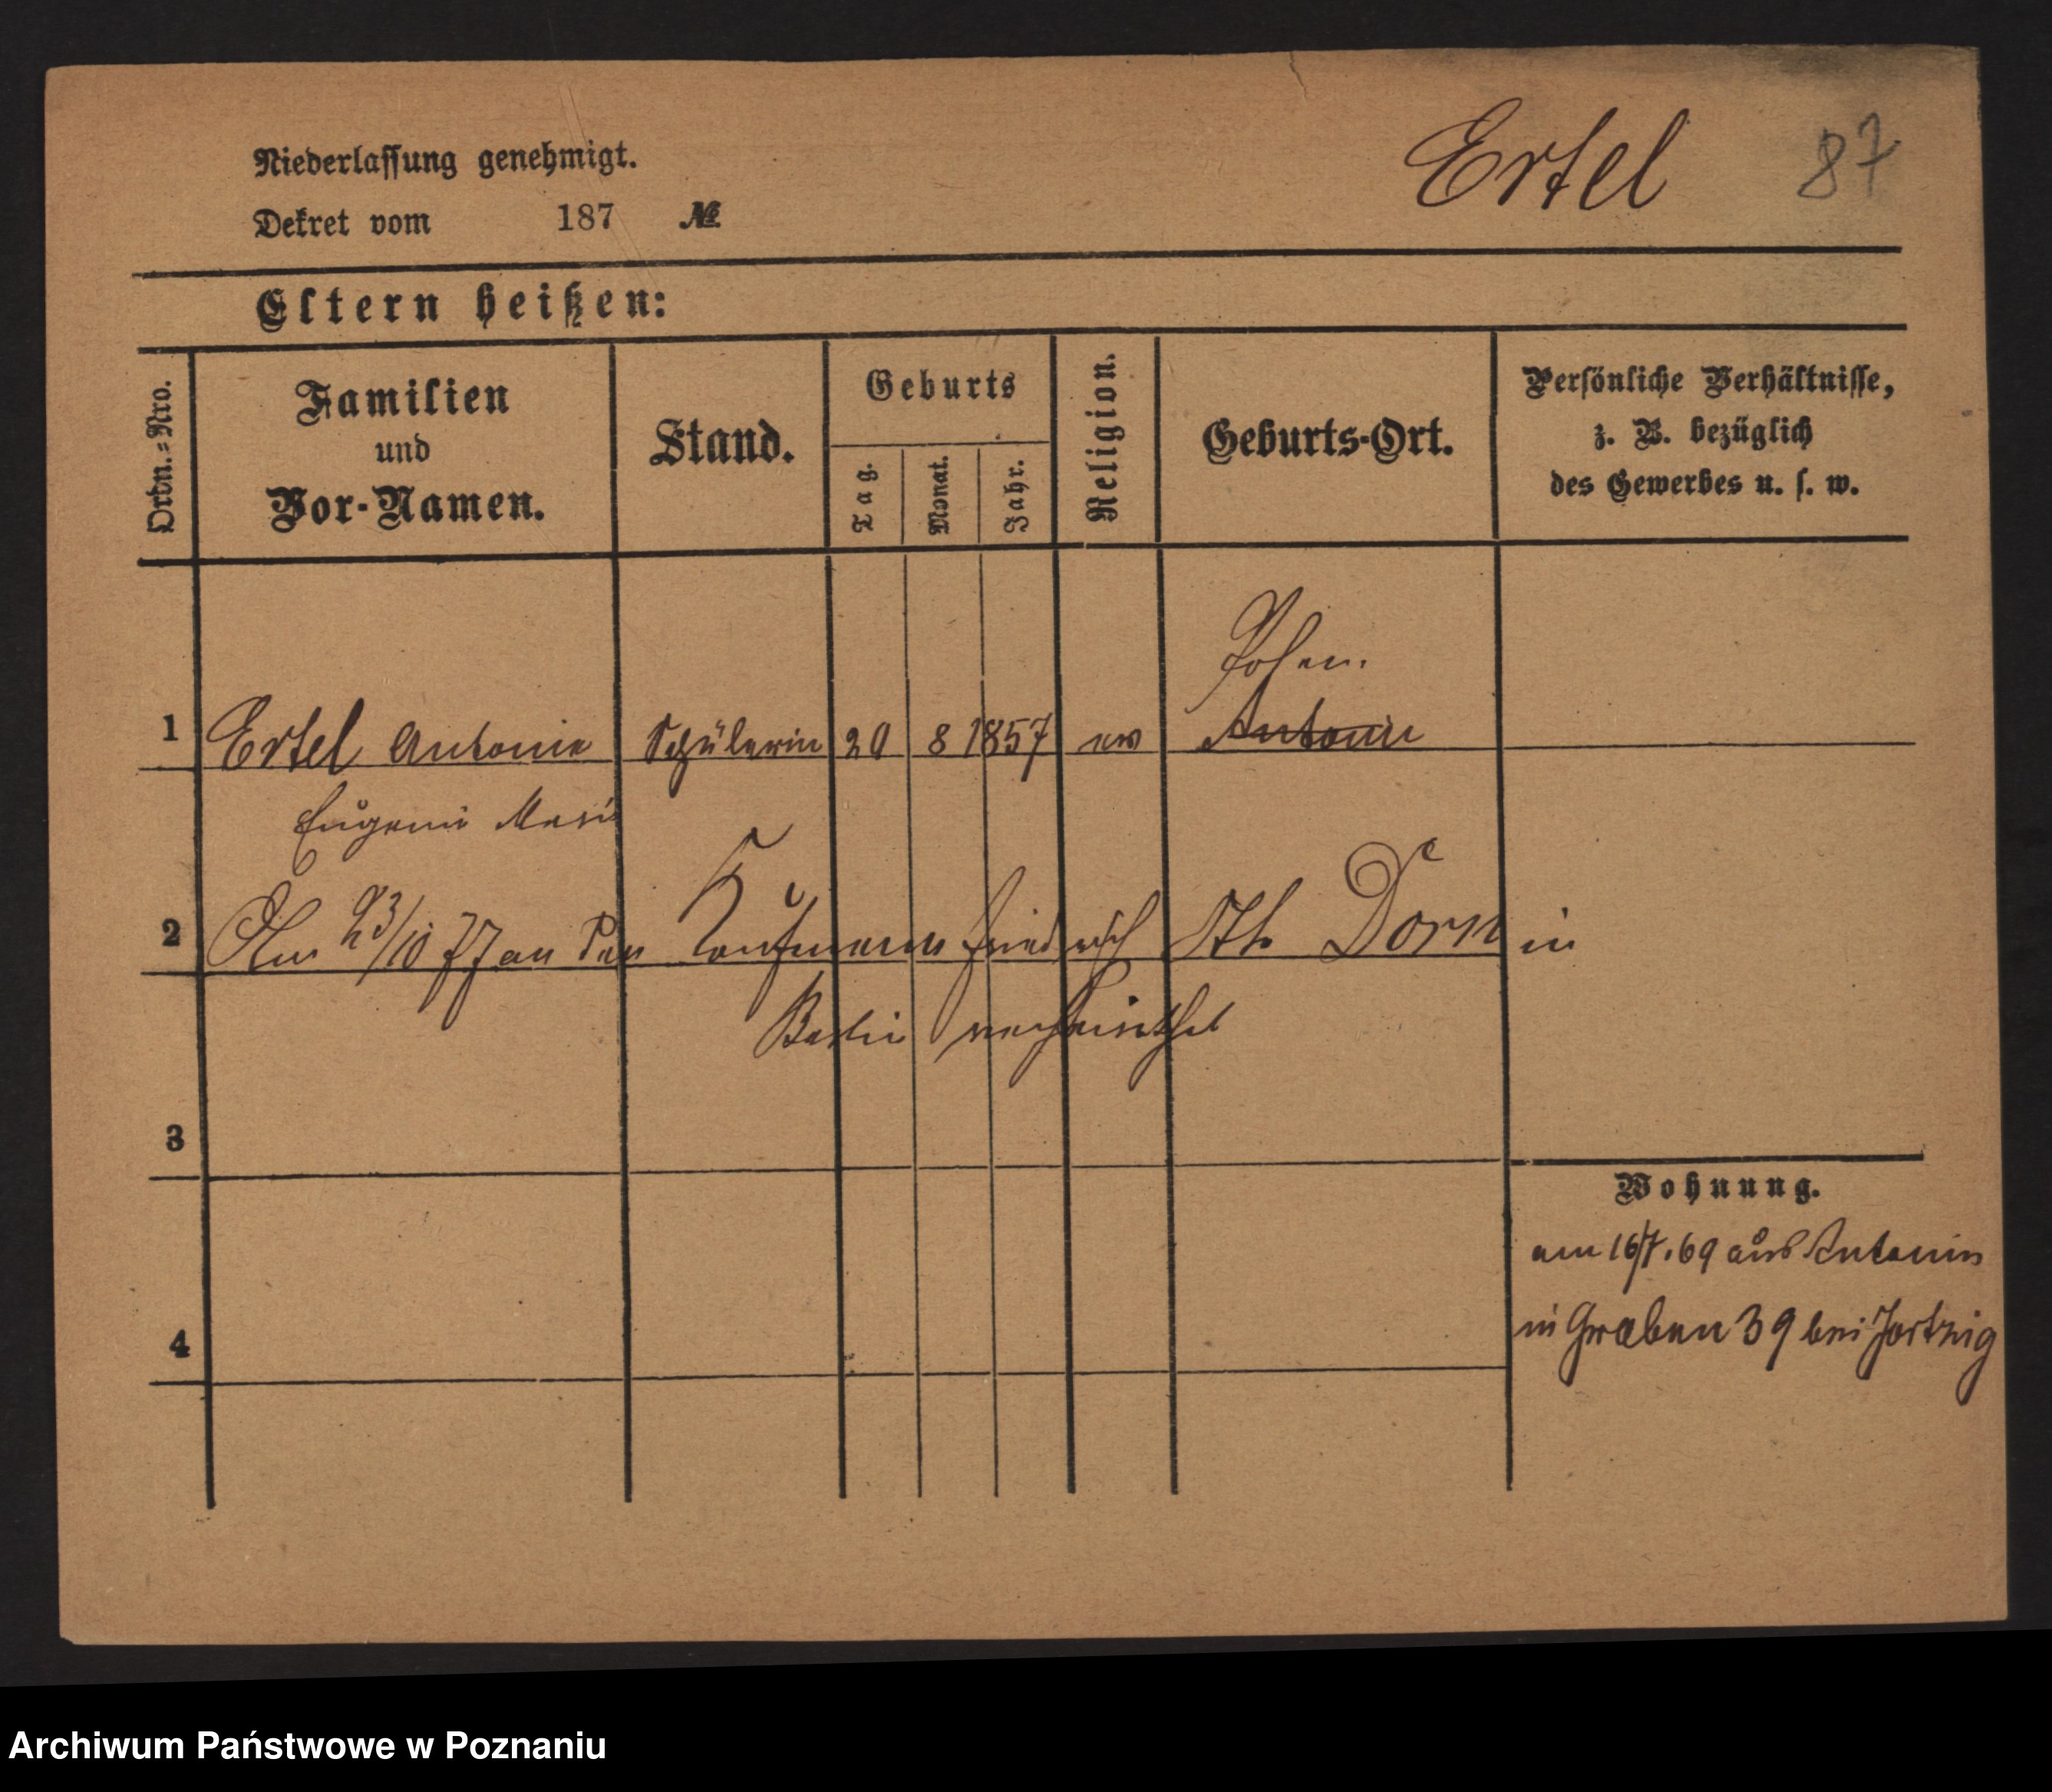 Ertel 87
Niederlassung genehmigt.
Dekret vom 187 №
Eltern heißen:
Ordn.-Nro. Familien und Vor-Namen. Stand. Geburts Tag. Monat. Jahr. Religion. Geburts-Ort. Persönliche Verhältnisse, z. B. bezüglich des Gewerbes u. s. w.
Posen.
1 Ertel Antonie Schülerin 20 8 1857 ev Antonin
Eugenie Marie
2 Am 23/10 77 an den Kaufmann Friedrich Dorn in
Berlin verheirathet
3
Wohnung.
am 16/7.69 aus Antonin
4 in Graben 39 bei
Archiwum Państwowe w Poznaniu